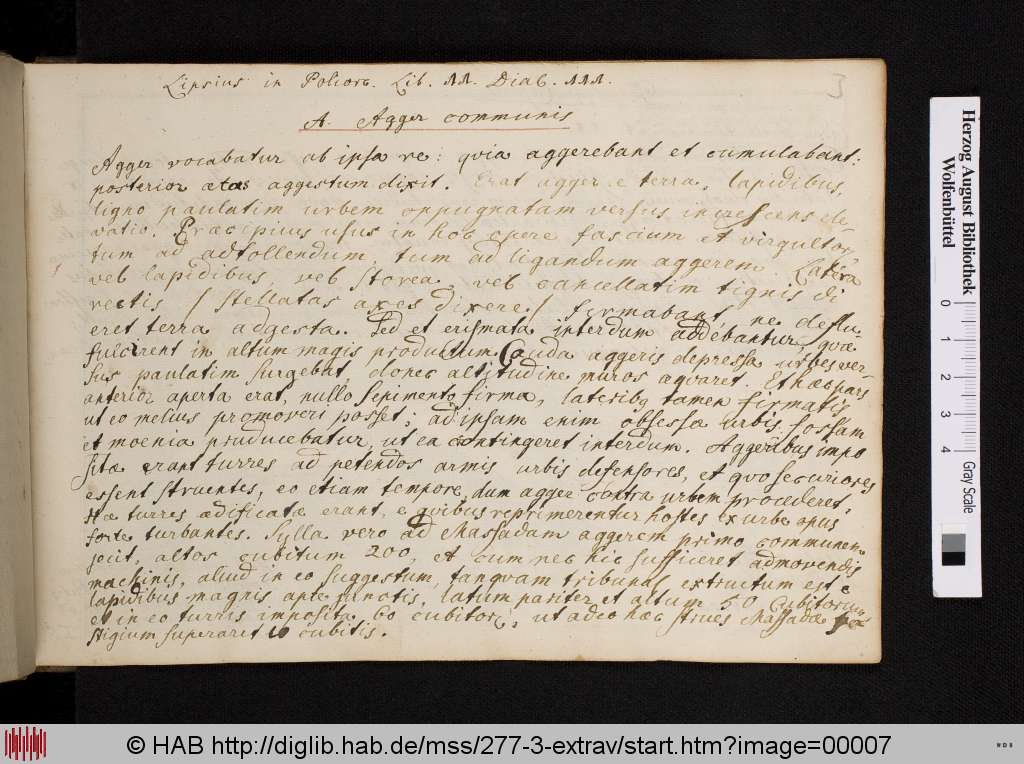 Lipsius in Poliorc. Lib. II. Dial. III.
3
A. Agger communis
Agger vocabatur ab ipsa re: quia aggerebant et cumulabant:
posterior ætas aggestum dixit. Erat agger e terra, lapidibus,
ligno paulatim urbem oppugnatam versus increscens ele
vatio. Præcipuus usus in hoc opere fascium et virgultor
tum ad adtollendum, tum ad ligandum aggerem. Latera
vel lapidibus, vel storea, vel cancellatim tignis di
rectis / stellatas axes dixere / firmabant, ne deflu
eret terra adgesta. Sed et erismata interdum addebantur, quæ
fulcirent in altum magis productum. Cauda aggeris depressa urbes ver-
sus paulatim surgebat, donec altitudine muros æquaret. Et hæc pars
anterior aperta erat, nullo sepimento firma, lateribq tamen firmatis
ut eo melius promoveri posset; ad ipsam enim obsessæ urbis fossam
et moenia producebatur, ut ea contingeret interdum. Aggeribus impo
sitæ erant turres ad petendos armis urbis defensores, et quo securiores
essent struentes, eo etiam tempore, dum agger contra urbem procederet,
Hæ turres ædificatæ erant, e quibus reprimerentur hostes ex urbe opus
forte turbantes. Sylla vero ad Massadam aggerem primo communem
jecit, altos cubitum 200, et cum nec hic sufficeret admovendis
machinis, aliud in eo suggestum, tanquam tribunal extructum est e
lapidibus magnis apte junctis, latum pariter et altum 50 Cubitorum,
et in eo turris imposita 60 cubitor, ut adeo hæc strues Massadæ fa
stigium superaret 10 cubitis.
Herzog August Bibliothek
Wolfenbüttel
0 1 2 3 4
Gray Scale
© HAB http://diglib.hab.de/mss/277-3-extrav/start.htm?image=00007